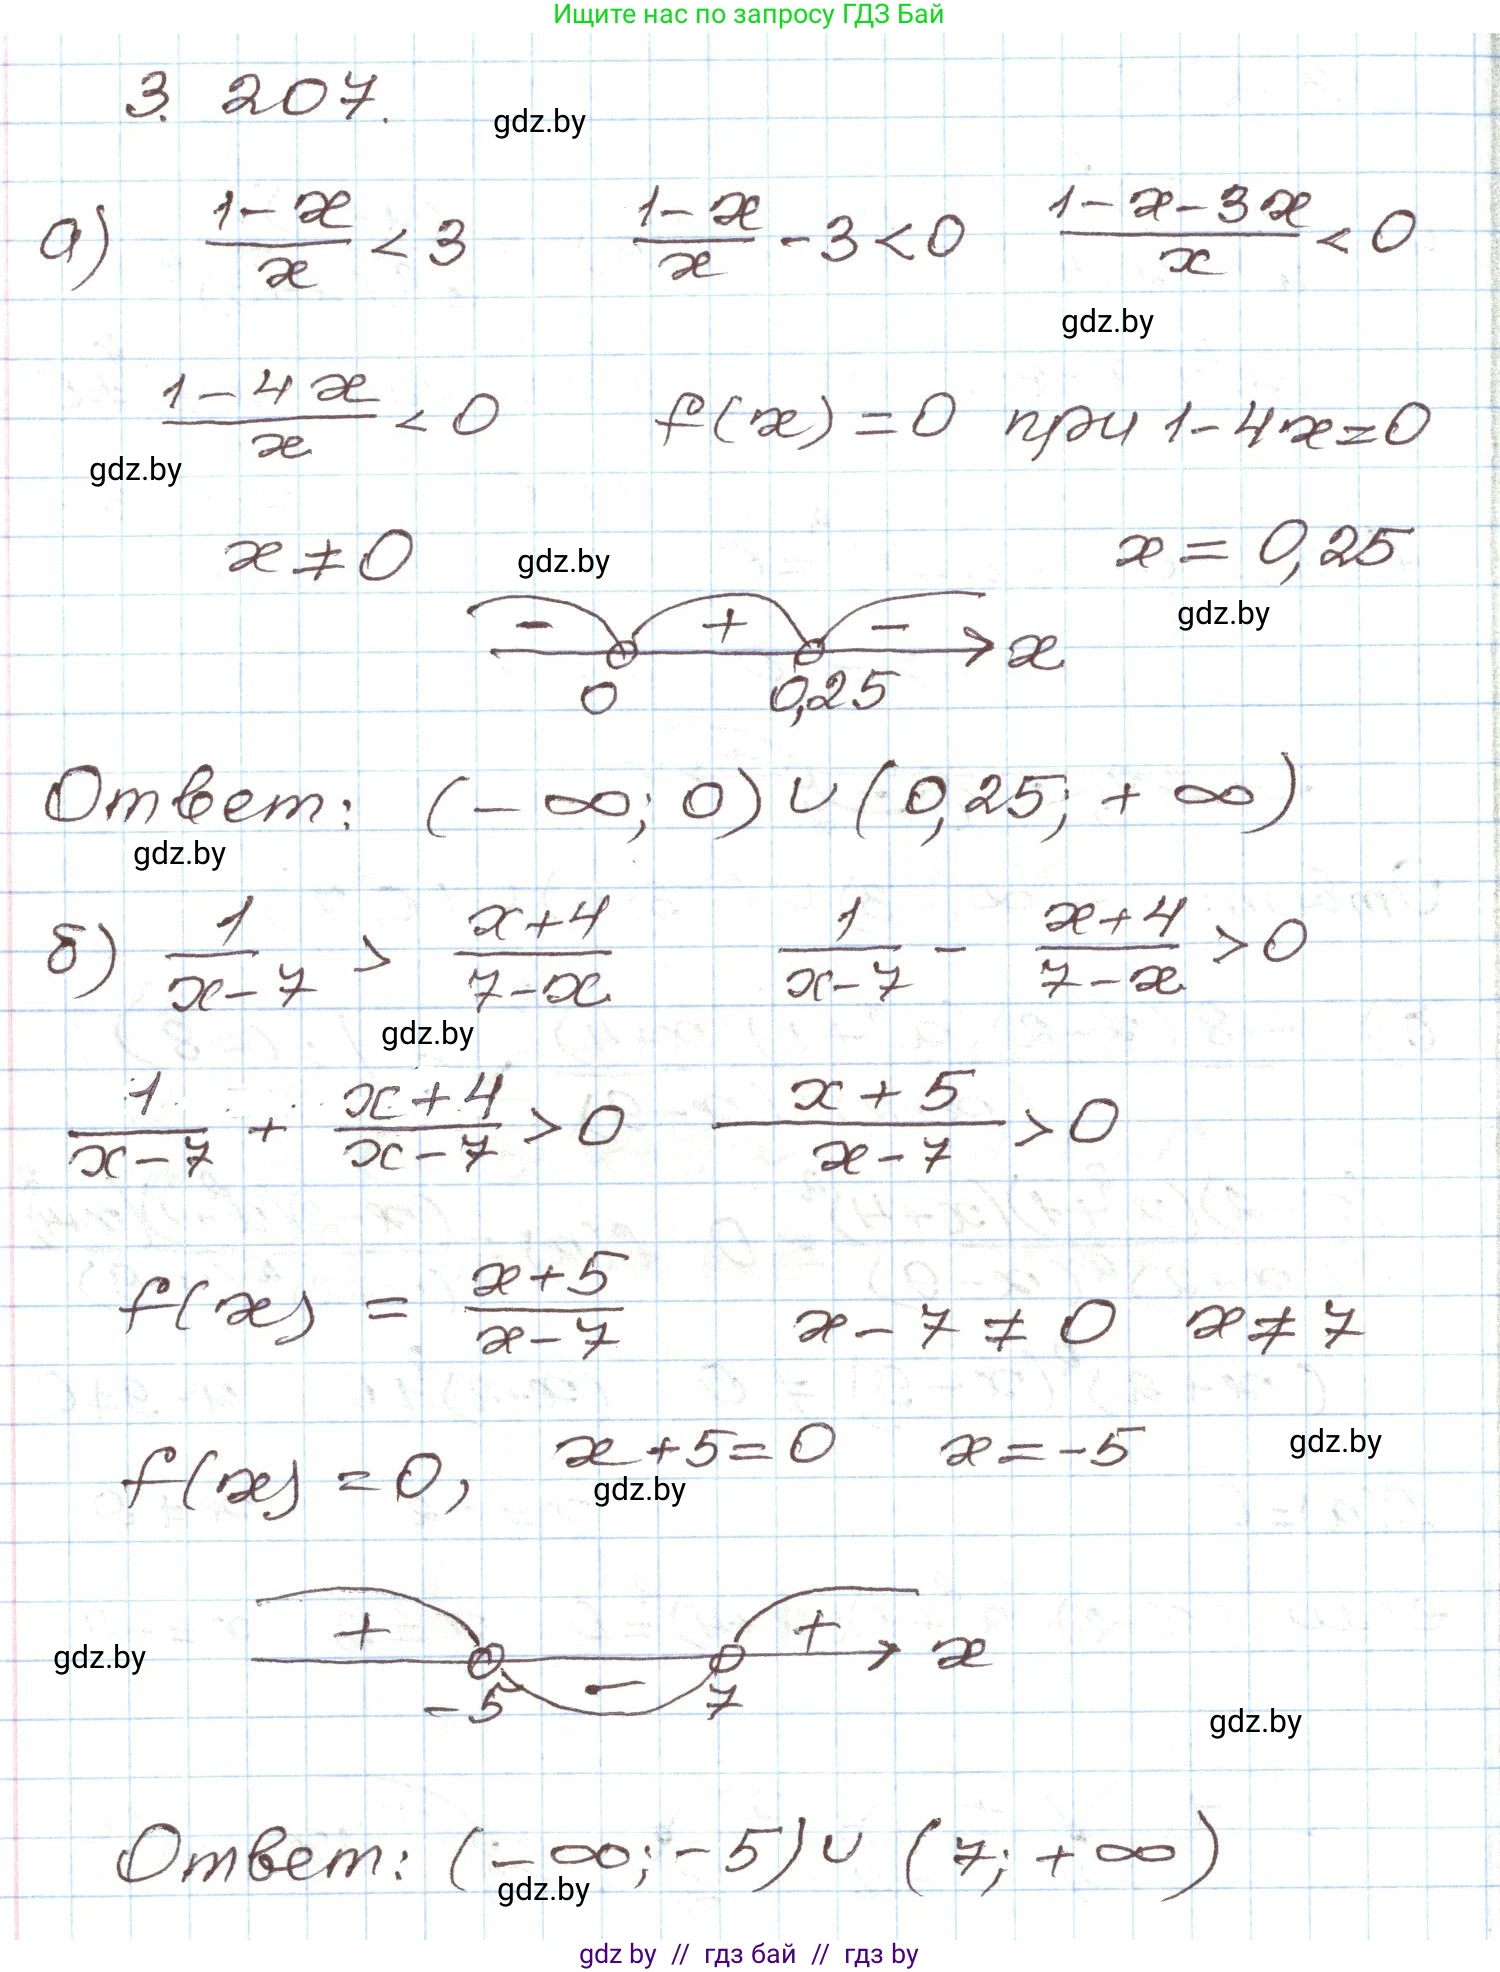 Ищите нас по запросу ГДЗ Бай
3. 207.
gdz.by
а) (1-x)/x < 3   (1-x)/x - 3 < 0   (1-x-3x)/x < 0
gdz.by
(1-4x)/x < 0   f(x) = 0 при 1-4x=0
gdz.by
x ≠ 0   x = 0,25
gdz.by
gdz.by
- + - x
0 0,25
Ответ: (-∞; 0) ∪ (0,25; +∞)
gdz.by
б) 1/(x-7) > (x+4)/(7-x)   1/(x-7) - (x+4)/(7-x) > 0
gdz.by
1/(x-7) + (x+4)/(x-7) > 0   (x+5)/(x-7) > 0
f(x) = (x+5)/(x-7)   x-7 ≠ 0   x ≠ 7
f(x) = 0, x+5=0   x=-5
gdz.by
gdz.by
+ - + x
gdz.by
-5 7
gdz.by
Ответ: (-∞; -5) ∪ (7; +∞)
gdz.by
gdz by // гдз бай // гдз by